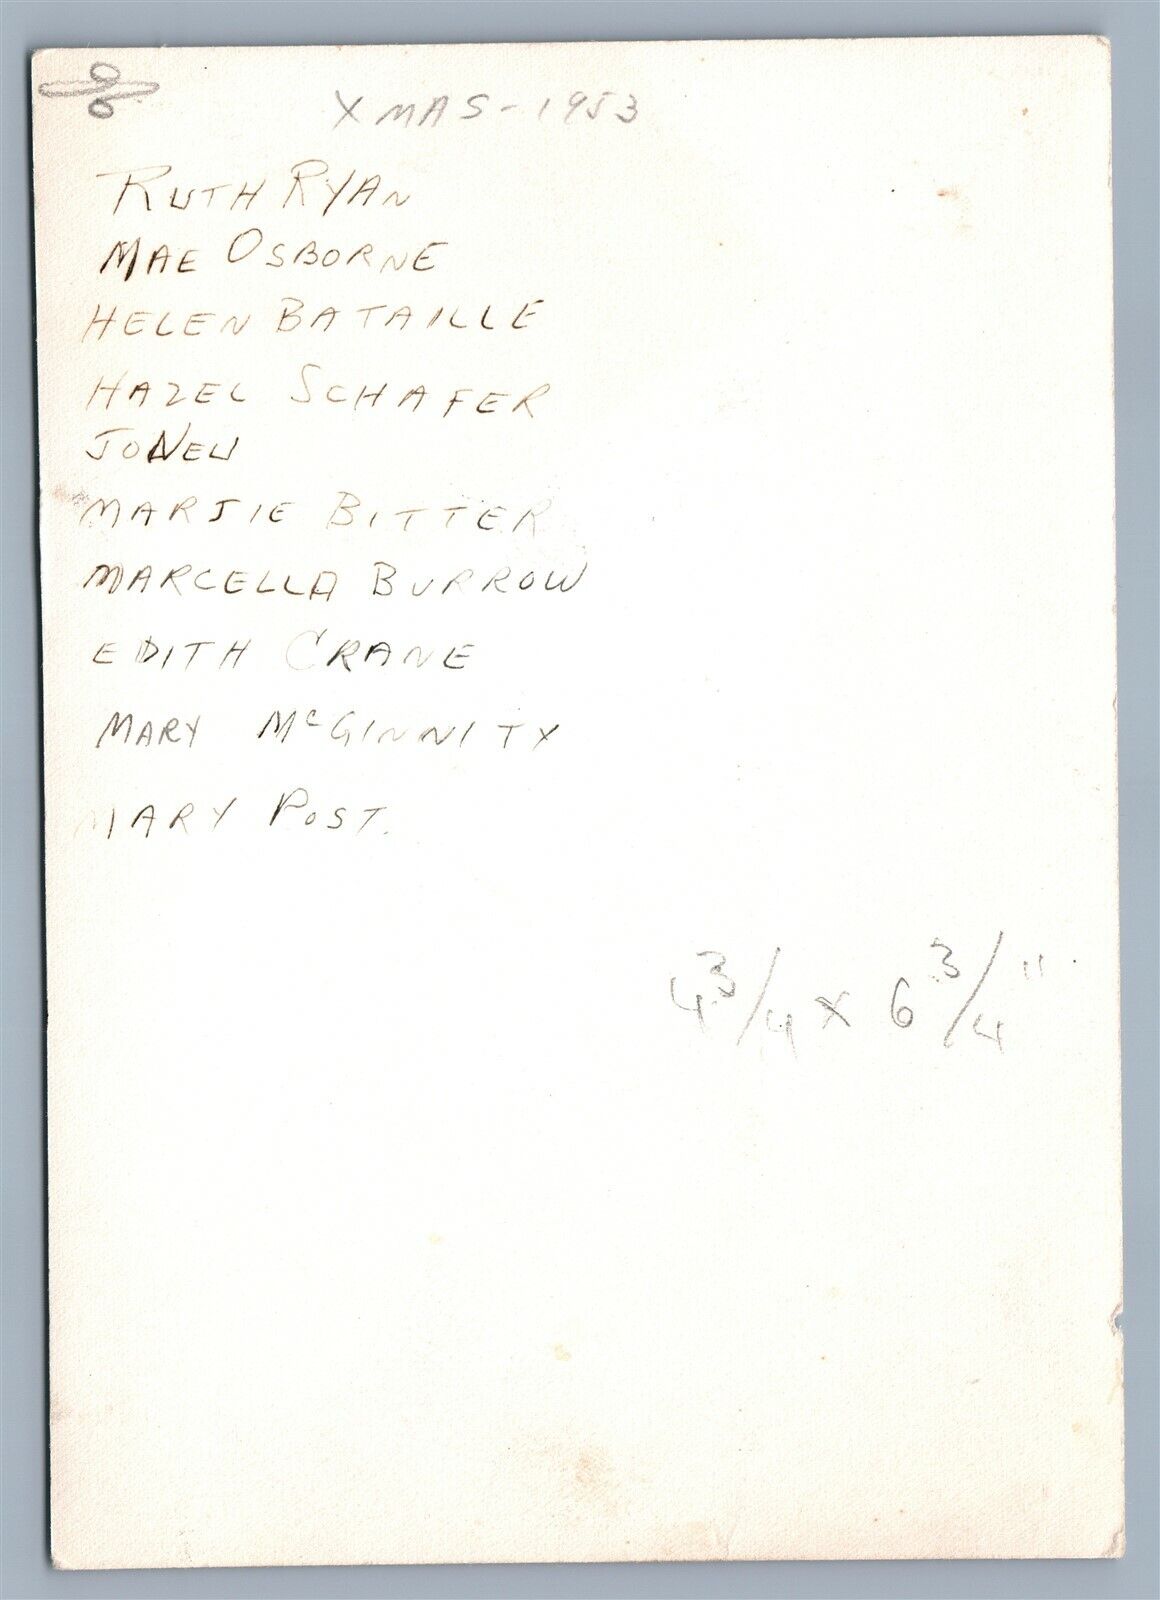 XMAS-1953
RUTH RYAN
MAE OSBORNE
HELEN BATAILLE
HAZEL SCHAFER
MARJIE BITTER
MARCELLA BURROW
EDITH CRANE
MARY McGINNITY
MARY POST.
4 3/4 x 6 3/4"